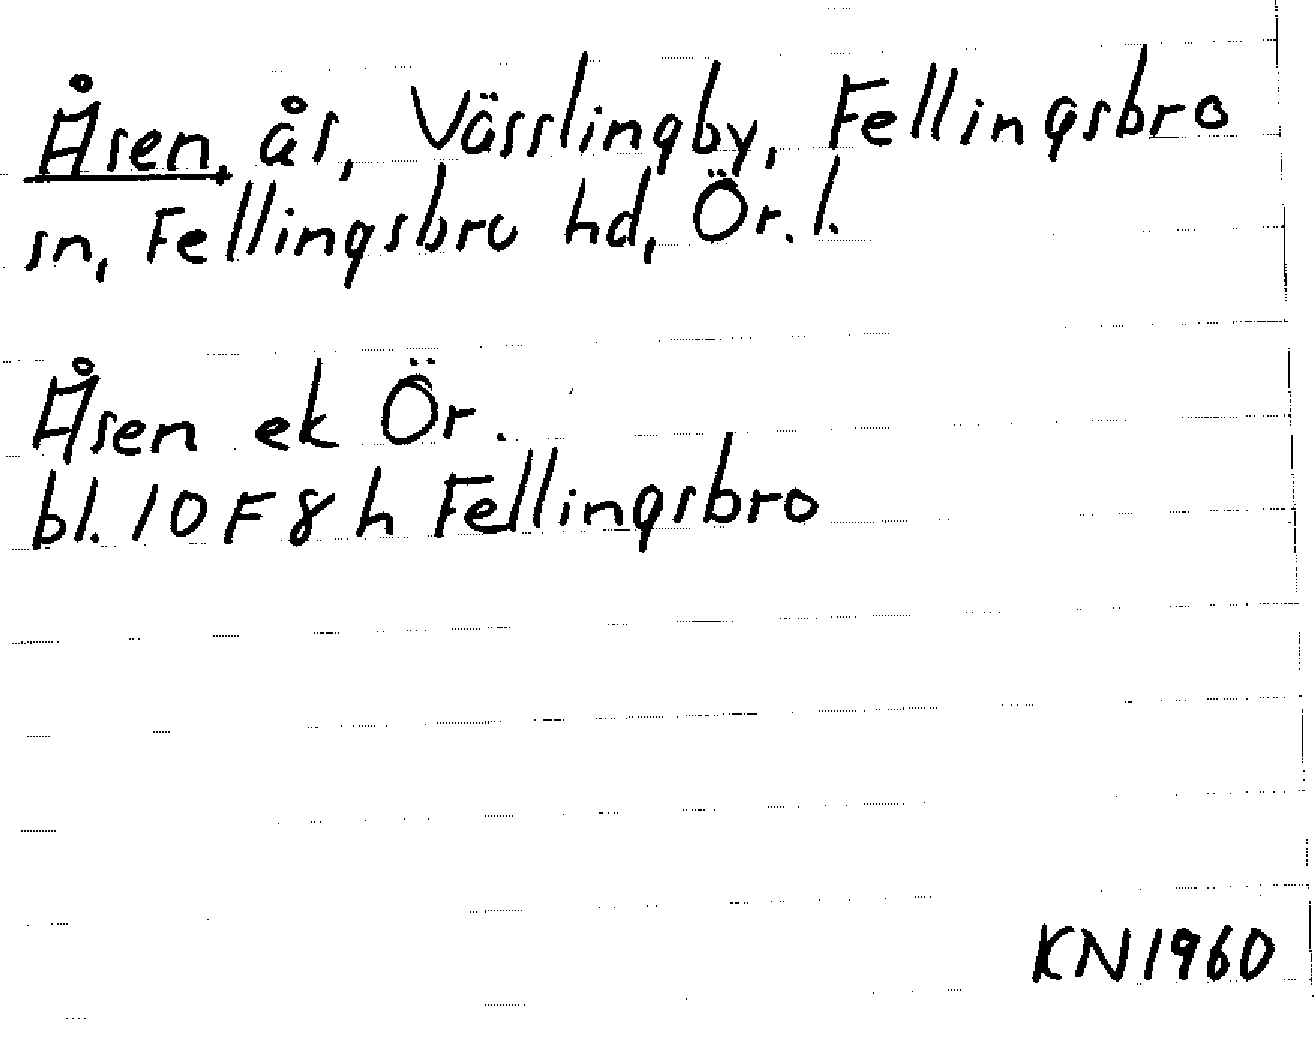 Åsen, ås, Vässlingby, Fellingsbro
sn, Fellingsbro hd, Ör. l.
Åsen ek Ör.
bl. 10 F 8 h Fellingsbro
KN1960